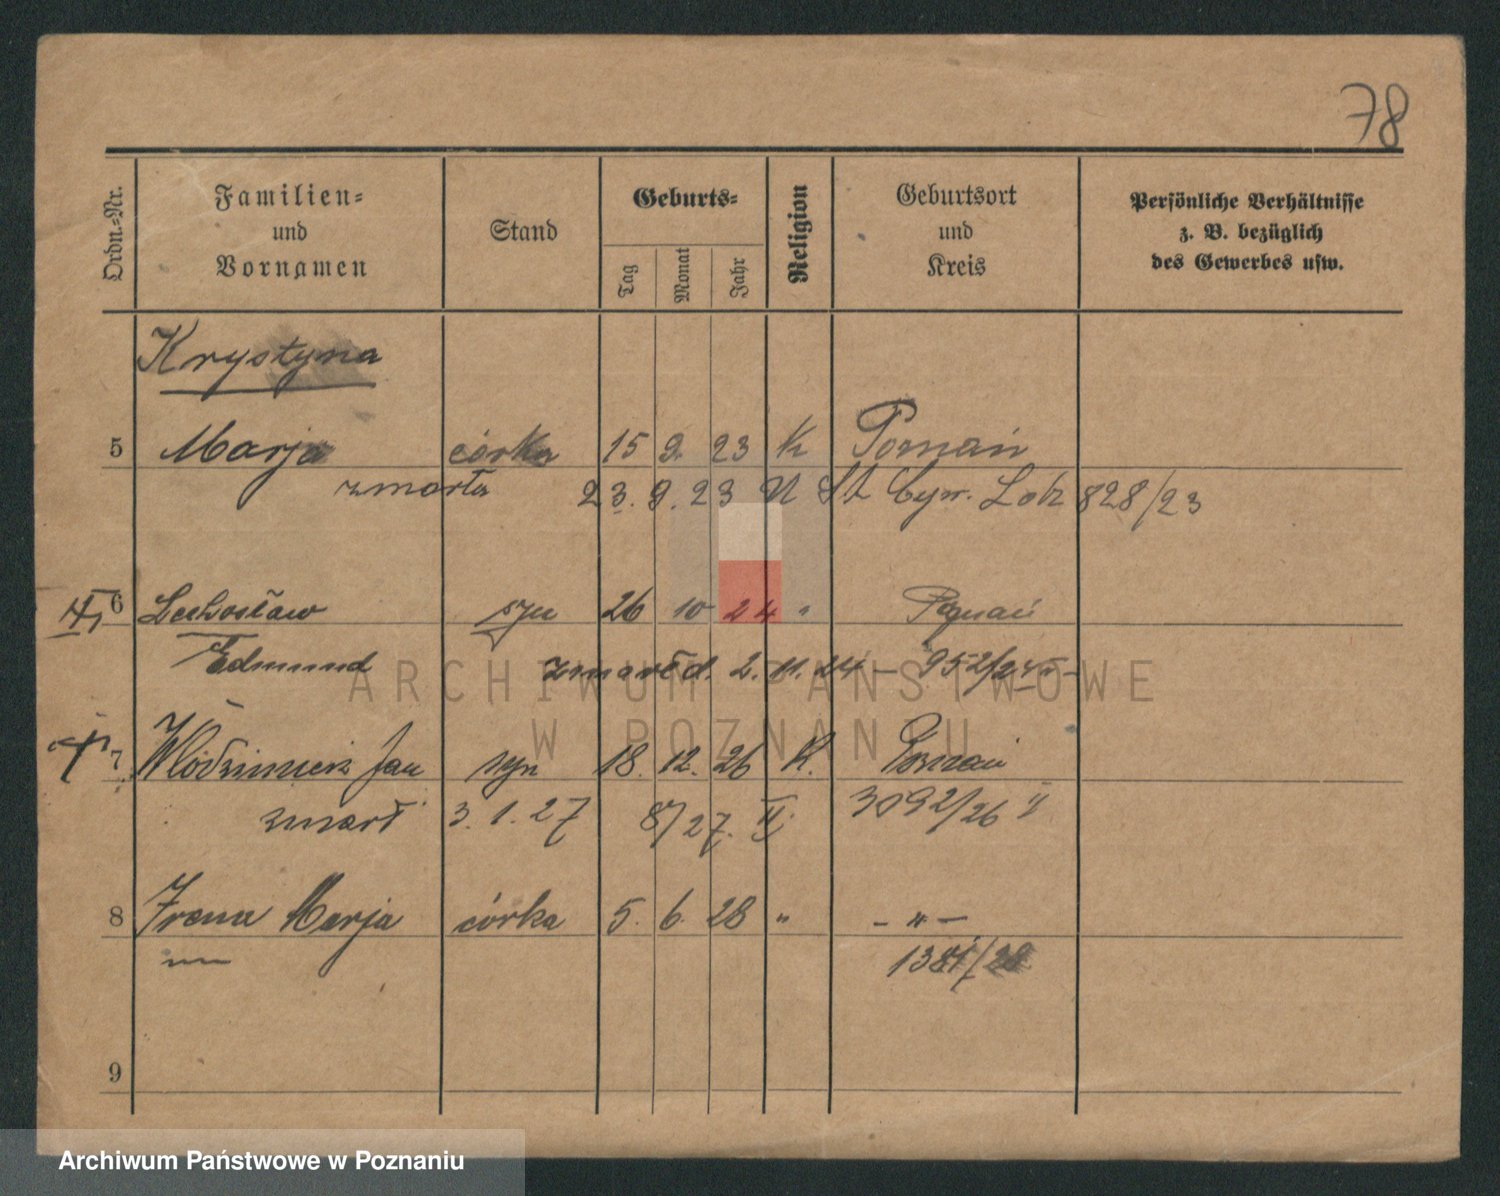 78
Ordn.-Nr.
Familien-
und
Vornamen
Stand
Geburts-
Tag
Monat
Jahr
Religion
Geburtsort
und
Kreis
Persönliche Verhältnisse
z. B. bezüglich
des Gewerbes usw.
Krystyna
5 Marja córka 15 9. 23 K Poznań
zmarła 23. 9. 23 St. 828/23
6 Lechosław syn 26 10 24 " Poznań
Edmund zmarł d. 2. 11. 24 — 952/24
ARCHIWUM PAŃSTWOWE
W POZNANIU
7 Włodzimierz Jan syn 18. 12. 26 K. Poznań
zmarł 3. 1. 27 8/27. II. 3092/26 II
8 Irena Marja córka 5. 6. 28 " - " -
1381/28
9
Archiwum Państwowe w Poznaniu